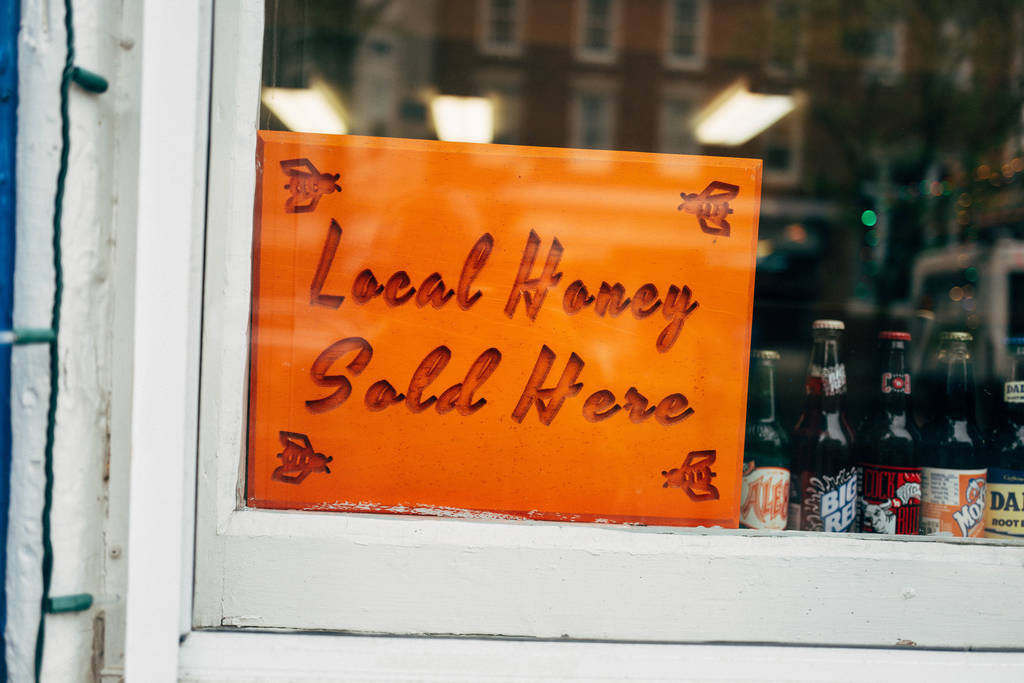 Local Honey
Sold Here
ALE
BIG
RED
COCK
BULL
ROOT